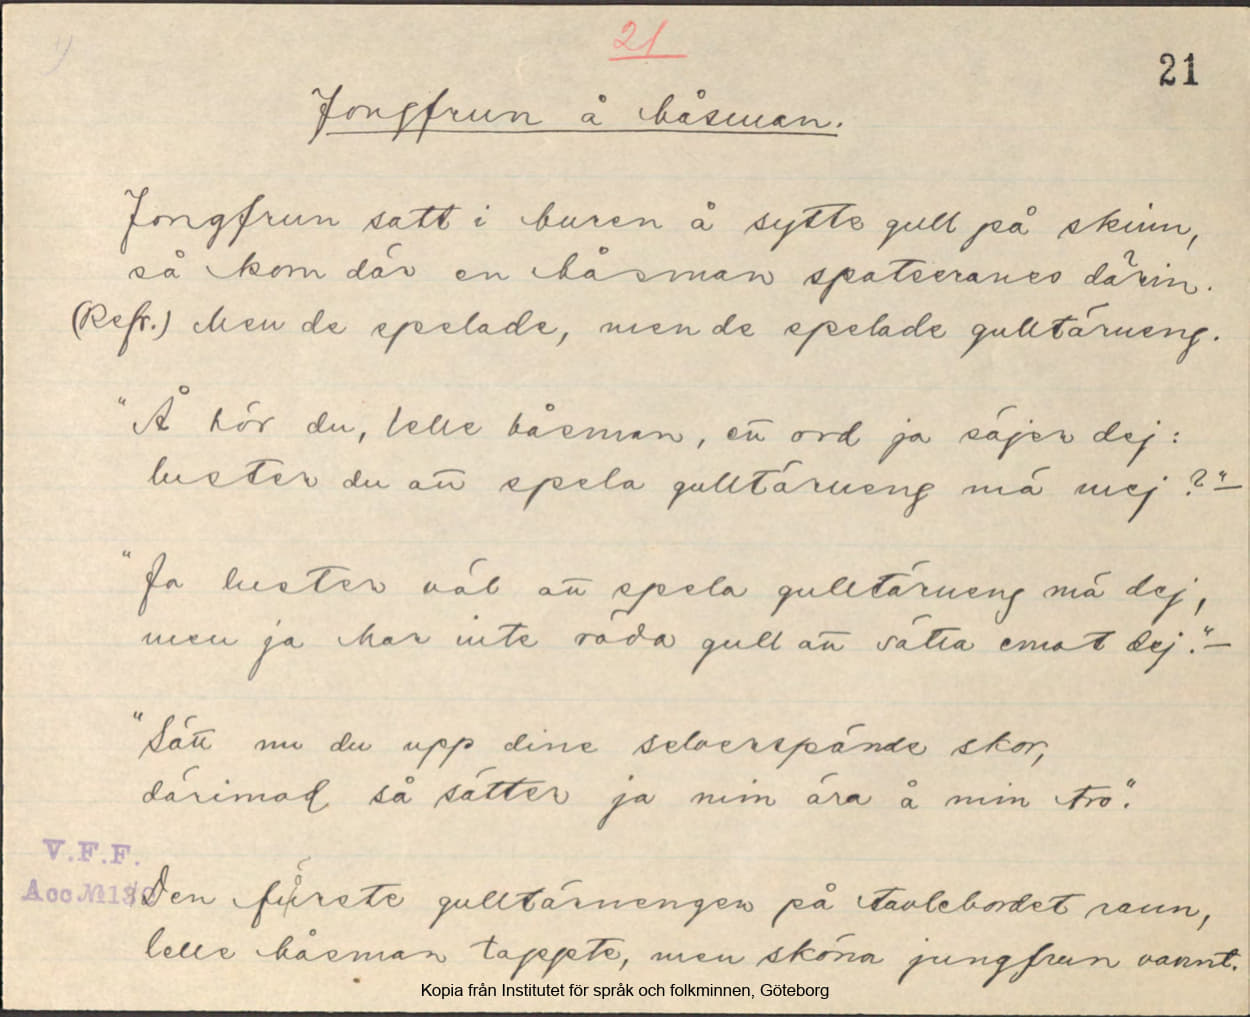 21
21
Jongfrun å båsman.
Jongfrun satt i buren å sytte gull på skinn,
så kom där en båsman spatseranes därin.
(Refr.) Men de spelade, men de spelade gulltärneng.
"Å hör du, lelle båsman, ett ord ja säjer dej:
luster du att spela gulltärneng mä mej?"—
"Ja luster väl att spela gulltärneng mä dej,
men ja har inte röda gull att sätta emot dej."—
"Sätt nu du upp dine selverspände skor,
därimod så sätter ja min ära å min tro".
V.F.F.
Acc № 139
Den förste gulltärnengen på tavlebordet rann,
lelle båsman tappte, men sköna jungfrun vannt.
Kopia från Institutet för språk och folkminnen, Göteborg